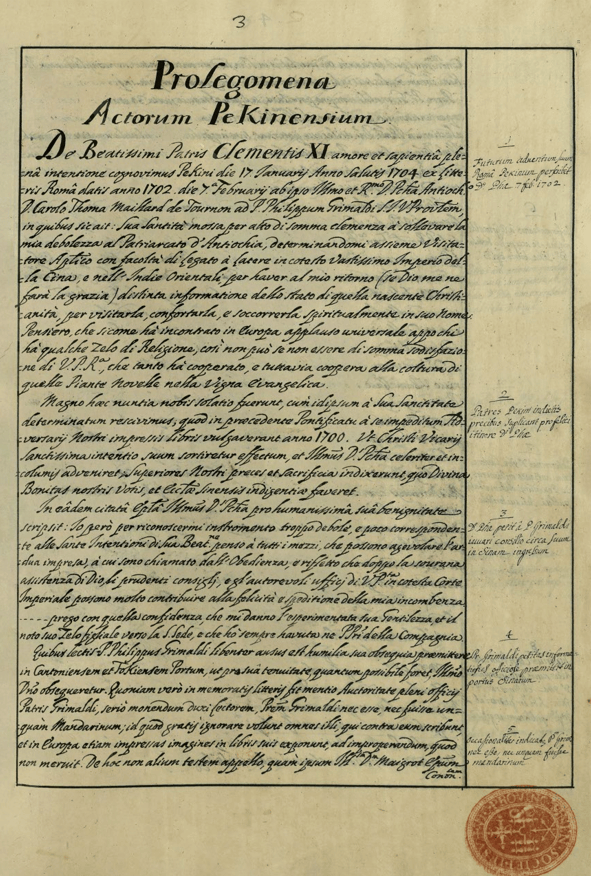 3
Prolegomena
Actorum Pekinensium.
De Beatissimi Patris Clementis XI amore et sapientiâ ple-
nâ intentione cognovimus Pekini die 17 Januarij Anno Salutis 1704 ex Litte-
ris Româ datis anno 1702. die 7 Februarij ab ipso Illmo et Rmo D. Pchâ Antioch.
D. Carolo Thoma Maillard de Tournon ad P. Philippum Grimaldi S.I. V. Provlem
in quibus sic ait: Sua Santità mossa per atto di somma clemenza à sollevare la
mia debolezza al Patriarcato d'Antiochia, determinandomi assieme Visita-
tore Aplico con facoltà di Legato à latere in cotesto Vastissimo Imperio del-
la Cina, e nell' Indie Orientali, per haver al mio ritorno (se Dio me ne
farà la grazia) distinta informatione dello stato di quella nascente Christi-
anità, per visitarla, confortarla, e soccorrerla spiritualmente in suo Nome
Pensiero, che sicome hà incontrato in Europa applauso universale appo chi
hà qualche Zelo di Religione, così non può se non essere di somma sodisfazio-
ne di V.P.Ra, che tanto hà cooperato, e tuttavia coopera alla coltura di
quelle Piante Novelle nella Vigna Evangelica.
Magno hæc nuntia nobis solatio fuerunt, cum id ipsum à Suâ Sanctitate
determinatum rescivimus, quod in præcedente Pontificatu à se impeditum Ad-
versarij Nostri impressis libris vulgaverant anno 1700. Ut Christi Vicarij
Sanctissima intentio suum sortiretur effectum, et Illmus D. Pcha celeriter et in-
columis adveniret, Superiores Nostri preces et sacrificia indixerunt, quo Divina
Bonitas nostris votis, et Ecclæ Sinensis indigentiæ faveret.
In eâdem citatâ Eplâ Illmus D. Pcha pro humanissimâ suâ benignitate
scripsit: Io però per riconoscermi instromento troppo debole, e poco corresponden-
te alle Sante Intentioni di Sua Beatne penso à tutti i mezzi, che possono agevolare l'ar-
dua impresa, à cui sono chiamato dall' Obedienza, e rifletto che doppo la sourana
assistenza di Dio, le prudenti consigli, e gl'autorevoli ufficj di V.P. in cotesta Corte
Imperiale possono molto contribuire alla felicità e speditione della mia incombenza
------ prego con quella confidenza che mi danno l'esperimentata sua Gentilezza et il
noto suo Zelo filiale verso la S. Sede, e che hò sempre havuta ne PPri della Compagnia
Quibus lectis P. Philippus Grimaldi libenter ausus est humilia sua obsequia præmittere
in Cantoniensem et Fokiensem Portum, ut pro suâ tenuitate, quantum possibile foret, Illmo
Dno obsequeretur. Quoniam verò in memoratis litteris fit mentio Auctoritate pleni officij
Patris Grimaldi, seriò monendum duxi Lectorem, Prem Grimaldi nec esse, nec fuisse un-
quam Mandarinum; id quod gratis ignorare volunt omnes illi, qui contra eum scribunt
et in Europa etiam impressas imagines in libris suis exponunt, ad improperandum, quod
non meruit. De hoc non alium testem appello, quam ipsum Illm Dn Maigrot Epum
Conon.
1
Futurum adventum suum
Româ Pekinum perscribit
D. Pcha 7 feb. 1702.
2
Patres Pekin indictis
precibus supplicant pro felici
itinere D. Pchæ
3
D. Pcha petit à P. Grimaldi
iuvari consilio circa suum
in Sinam ingressum
4
P. Grimaldi
obsequia præmittit in
portus Sinarum.
5
nec esse, nec unquam fuisse
mandarinum